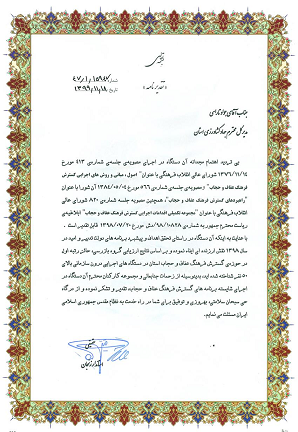 « تقدیرنامه »
شماره
تاریخ ۱۳۹۹/۱۱/۱۸
جناب آقای
مدیرکل محترم جهاد کشاورزی استان
بی تردید اهتمام مجدانه آن دستگاه در اجرای مصوبه‌ی جلسه‌ی شماره‌ی ۴۱۳ مورخ
۱۳۷۶/۱۱/۱۴ شورای عالی انقلاب فرهنگی با عنوان "اصول، مبانی و روش های اجرایی گسترش
فرهنگ عفاف و حجاب" (مصوبه‌ی جلسه‌ی شماره‌ی ۵۶۶ مورخ ۱۳۸۴/۰۵/۰۴ آن شورا با عنوان
"راهبردهای گسترش فرهنگ عفاف و حجاب"، همچنین مصوبه جلسه شماره‌ی ۸۲۰ شورای عالی
انقلاب فرهنگی با عنوان "مجموعه تکمیلی اقدامات اجرایی گسترش فرهنگ عفاف و حجاب" ابلاغیه‌ی
ریاست محترم جمهور به شماره‌ی ۹۸/۱۰۸۲۸/دش مورخ ۱۳۹۸/۰۷/۲۰ قابل تقدیر است.
با عنایت به اینکه آن دستگاه در راستای تحقق اهداف و پیشبرد برنامه های دولت تدبیر و امید در
سال ۱۳۹۸ نقش ارزنده ای ایفا نموده و بر اساس نتایج ارزیابی گروه بازرسی، حائز رتبه اول
در حوزه‌ی گسترش فرهنگ عفاف و حجاب استان در دستگاه های اجرایی درون سازمانی بالای
۵۰ نفر شناخته شده اید، بدینوسیله از زحمات جنابعالی و مجموعه کارکنان محترم آن دستگاه در
اجرای شایسته برنامه های گسترش فرهنگ عفاف و حجاب، تقدیر و تشکر نموده و از درگاه
حق سبحان سلامتی، بهروزی و توفیق برای شما در راه خدمت به نظام مقدس جمهوری اسلامی
ایران مسئلت می نمایم.
استاندار زنجان